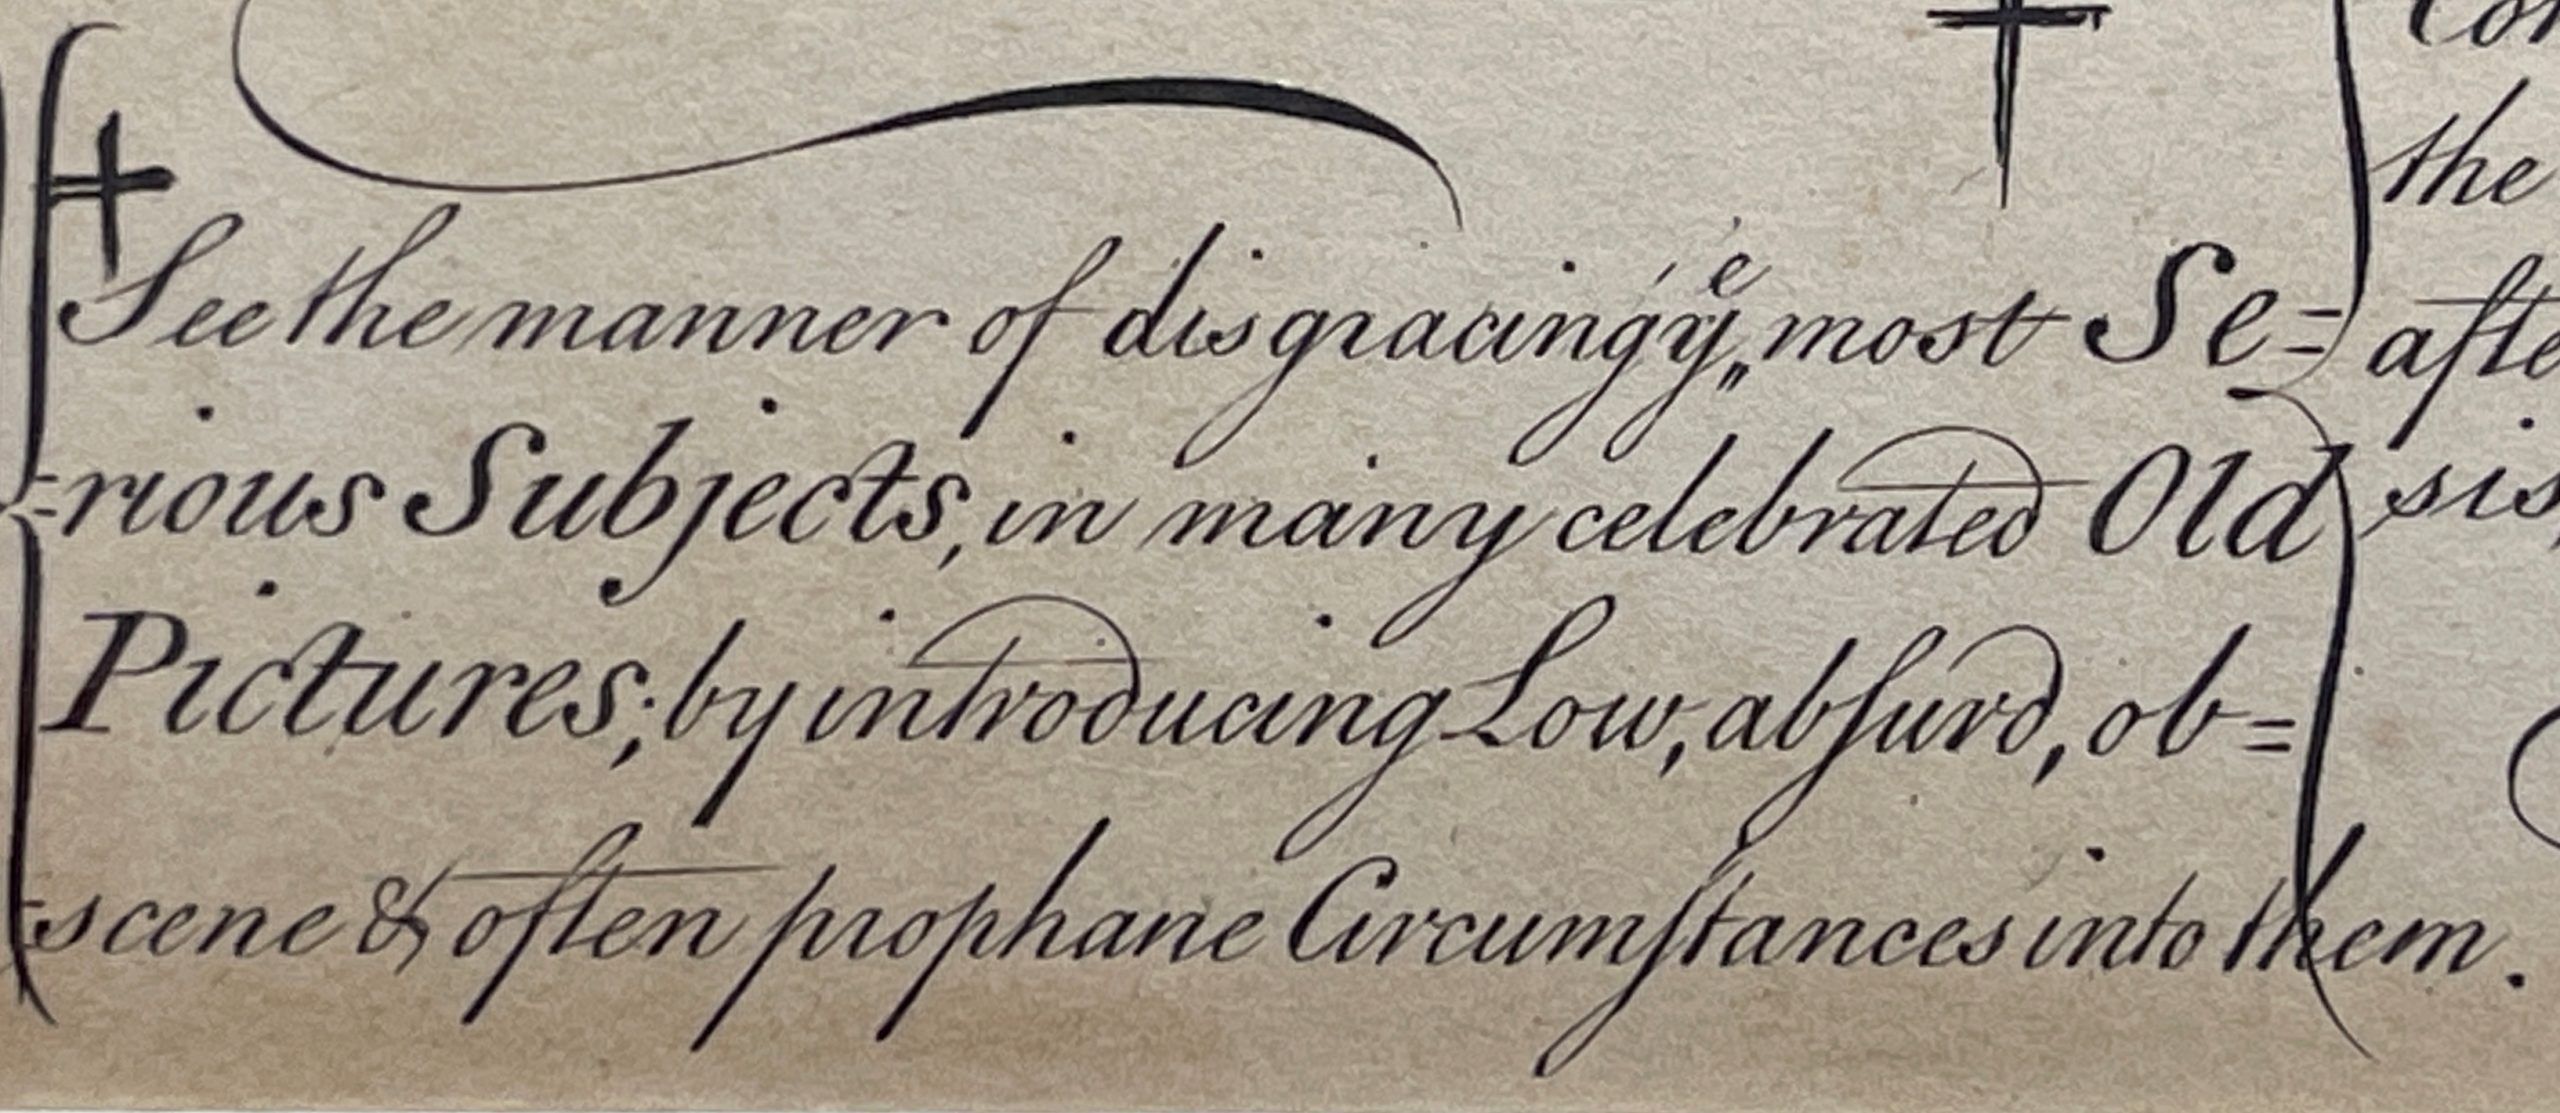 See the manner of disgracing yͤ most Se=
=rious Subjects, in many celebrated Old
Pictures; by introducing Low, abſurd, ob=
=scene & often prophane Circumſtances into them.
the